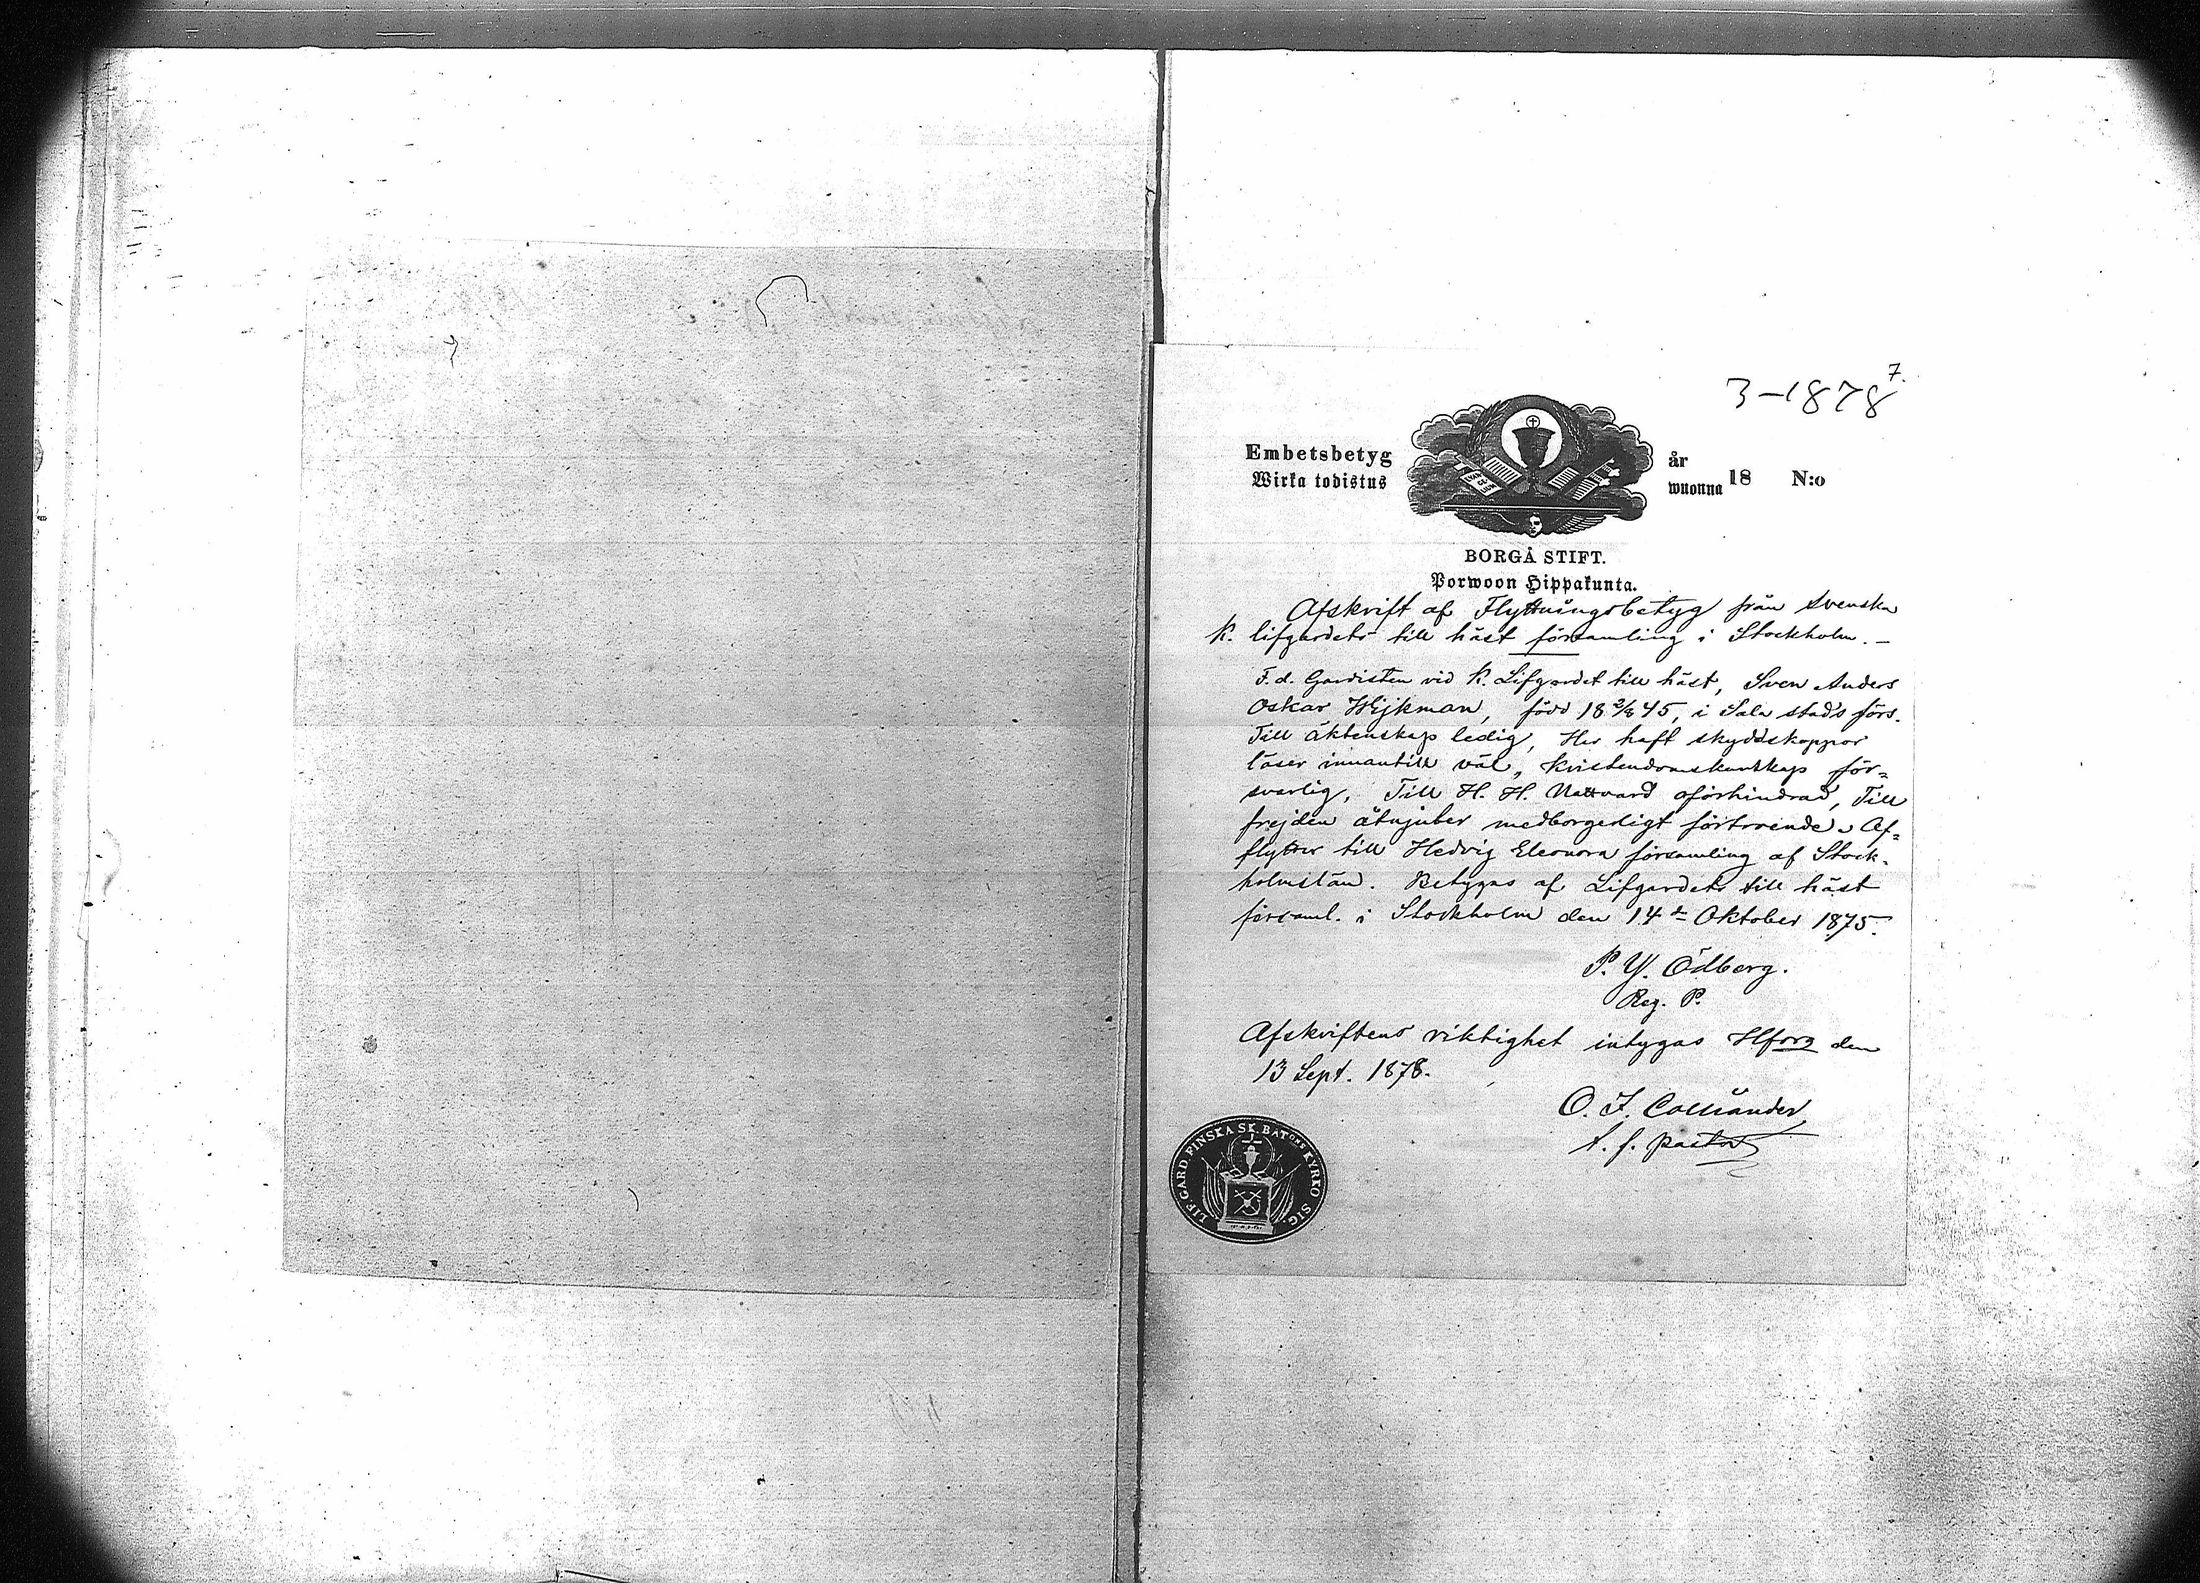 3-1878
7.
Embetsbetyg
Wirka todistus
år
wuonna 18 N:o
BORGÅ STIFT.
Porwoon Hippakunta.
Afskrift af Flyttningsbetyg från Svenska
K. lifgardets till häst församling i Stockholm. —
F. d. Gardisten vid K. Lifgardet till häst, Sven Anders
Oskar Wijkman, född 18 2/8 45, i Sala stads förs.
Till äktenskap ledig, Har haft skyddskoppor
läser innantill väl, Kristendomskunskap för=
svarlig, Till H. H. Nattvard oförhindrad, Till
frejden åtnjuter medborgerligt förtroende. Af=
flyttar till Hedvig Eleonora församling af Stock-
holmslän. Betygas af Lifgardets till häst
församl. i Stockholm den 14de Oktober 1875.
P. Y. Ödberg.
Reg. P.
Afskriftens riktighet intygas Hfors den
13 Sept. 1878.
O. I. Colliander
t. f. pastor
LIF. GARD. FINSKA SK. BATONS KYRKO SIG.